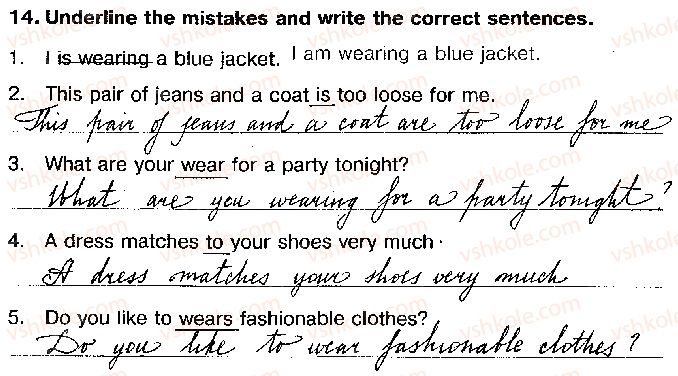 14. Underline the mistakes and write the correct sentences.
1. I is wearing a blue jacket. I am wearing a blue jacket.
2. This pair of jeans and a coat is too loose for me.
This pair of jeans and a coat are too loose for me
3. What are your wear for a party tonight?
What are you wearing for a party tonight?
4. A dress matches to your shoes very much.
A dress matches your shoes very much
5. Do you like to wears fashionable clothes?
Do you like to wear fashionable clothes?
vshkole.com